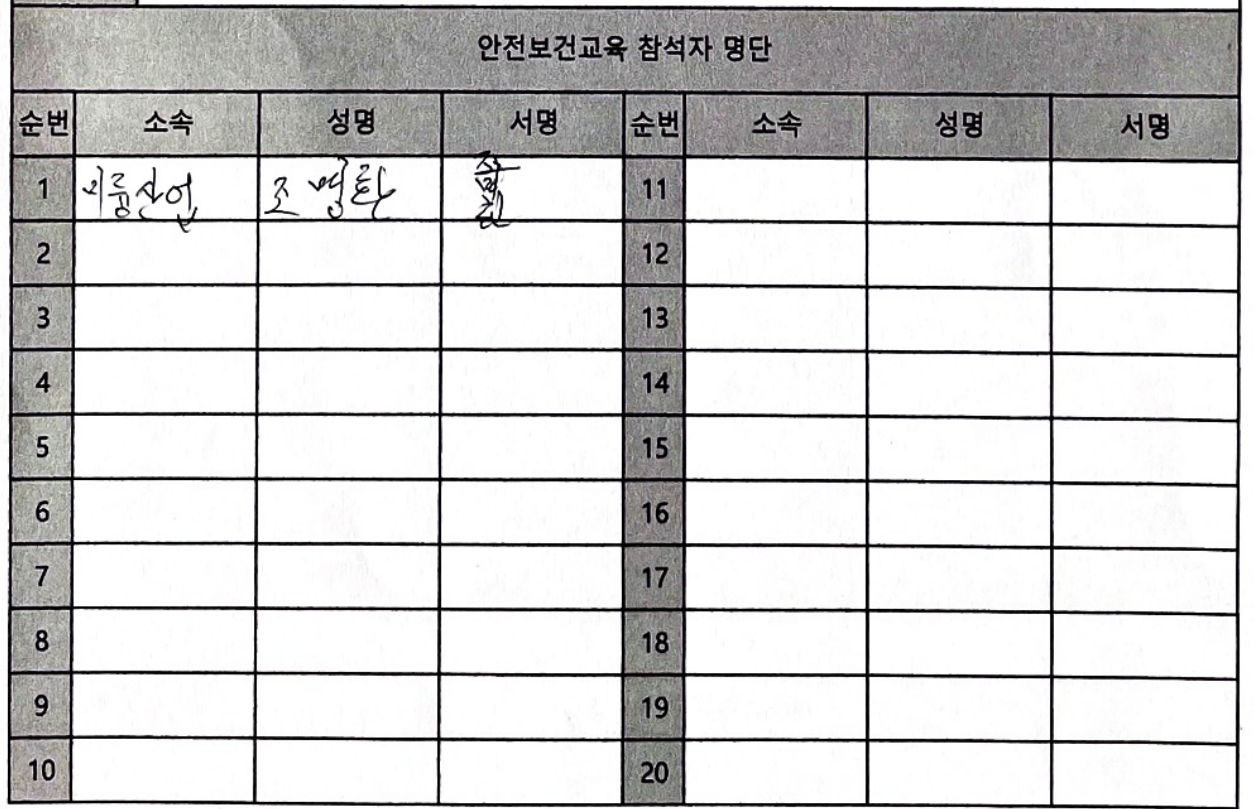 안전보건교육 참석자 명단
순번 소속 성명 서명 순번 소속 성명 서명
1 산업 조명 11
2 12
3 13
4 14
5 15
6 16
7 17
8 18
9 19
10 20